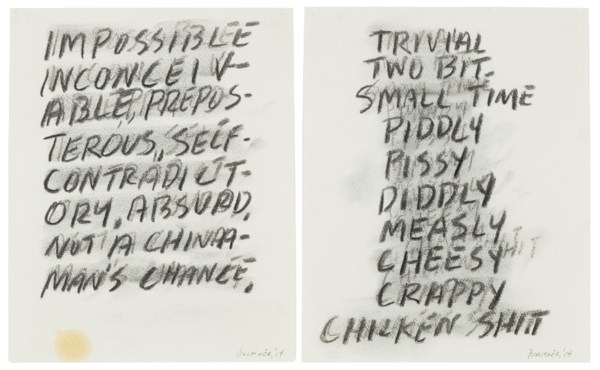 IMPOSSIBLE
INCONCEIV-
ABLE, PREPOS-
TEROUS, SELF-
CONTRADICT-
ORY, ABSURD,
NOT A CHINA-
MAN'S CHANCE,
TRIVIAL
TWO BIT-
SMALL TIME
PIDDLY
PISSY
DIDDLY
MEASLY
CHEESY
CRAPPY
CHICKEN SHIT